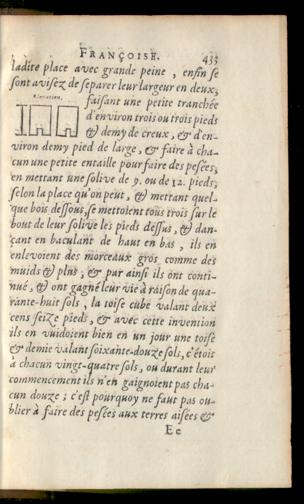 FRANÇOISE. 433
ladite place avec grande peine, enfin se
sont avisez de separer leur largeur en deux,
Elevation.
faisant une petite tranchée
d'environ trois ou trois pieds
& demy de creux, & d'en-
viron demy pied de large, & faire à cha-
cun une petite entaille pour faire des pesées,
en mettant une solive de 9. ou de 12. pieds,
selon la place qu'on peut, & mettant quel-
que bois dessous, se mettoient tous trois sur le
bout de leur solive les pieds dessus, & dan-
çant en baculant de haut en bas, ils en
enlevoient des morceaux gros comme des
muids & plus; & par ainsi ils ont conti-
nué, & ont gagné leur vie à raison de qua-
rante-huit sols, la toise cube valant deux
cens seize pieds, & avec cette invention
ils en vuidoient bien en un jour une toise
& demie valant soixante-douze sols, c'étoit
à chacun vingt-quatre sols, ou durant leur
commencement ils n'en gaignoient pas cha-
cun douze; c'est pourquoy ne faut pas ou-
blier à faire des pesées aux terres aisées &
Ee